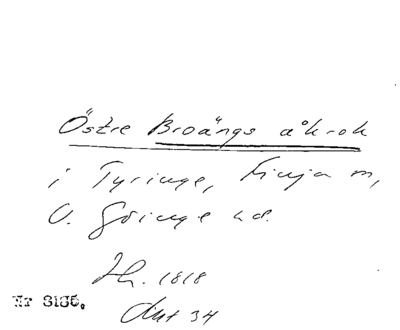 Östre Broängs åkrok
i Tyringe, Finja m,
V. Göinge hd.
Lh. 1818
Akt 34
Nr 3135.